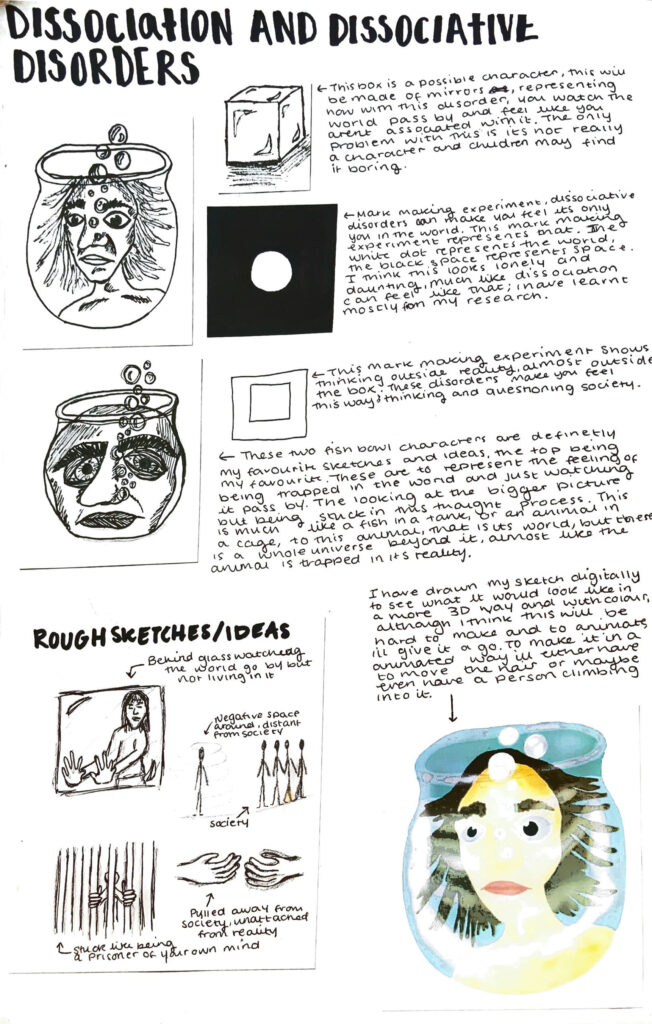 DISSOCIATION AND DISSOCIATIVE
DISORDERS
← This box is a possible character, this will
be made of mirrors, representing
how with this disorder, you watch the
world pass by and feel like you
arent associated with it. The only
problem with this is its not really
a character and children may find
it boring.
← Mark making experiment, dissociative
disorders can make you feel its only
you in the world. This mark making
experiment represents that. The
white dot represents the world,
the black space represents space.
I think this looks lonely and
daunting, much like dissociation
can feel like that, i have learnt
mostly from my research.
← This mark making experiment shows
thinking outside reality, almost outside
the box. These disorders make you feel
this way, thinking and questioning society.
← These two fish bowl characters are definetly
my favourite sketches and ideas, the top being
my favourite. These are to represent the feeling of
being trapped in the world and just watching
it pass by. The looking at the bigger picture
but being stuck in this thought process. This
is much like a fish in a tank, or an animal in
a cage, to this animal, that is its world, but theres
is a whole universe beyond it, almost like the
animal is trapped in its reality.
I have drawn my sketch digitally
to see what it would look like in
a more 3D way and with colour,
although I think this will be
hard to make and to animate,
i'll give it a go. To make it in a
animated way ill either have
to move the hair or maybe
even have a person climbing
into it.
ROUGH SKETCHES/IDEAS
Behind glass watching
the world go by but
not living in it
Negative space
around, distant
from society
society
Pulled away from
society, unattached
from reality
stuck like being
a prisoner of your own mind